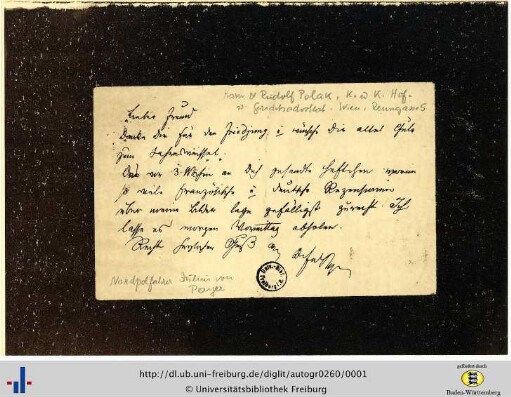 Herrn Dr Rudolf Polak, K. u K. Hof-
u Gerichtsadvokat. Wien. Renngasse 5
Lieber Freund
Danke Dir für den u wünsche Dir alles Gute
zum Jahreswechsel.
Das vor 3 Wochen an Dich gesandte Heftchen worin
so viele französische u deutsche Rezensionen
über meine Bilder lege gefälligst zurecht. Ich
lasse es morgen Vormittag abholen.
Recht herzlichen Gruß
Nordpolfahrer Julius von
Payer
http://dl.ub.uni-freiburg.de/diglit/autogr0260/0001
© Universitätsbibliothek Freiburg
gefördert durch
Baden-Württemberg